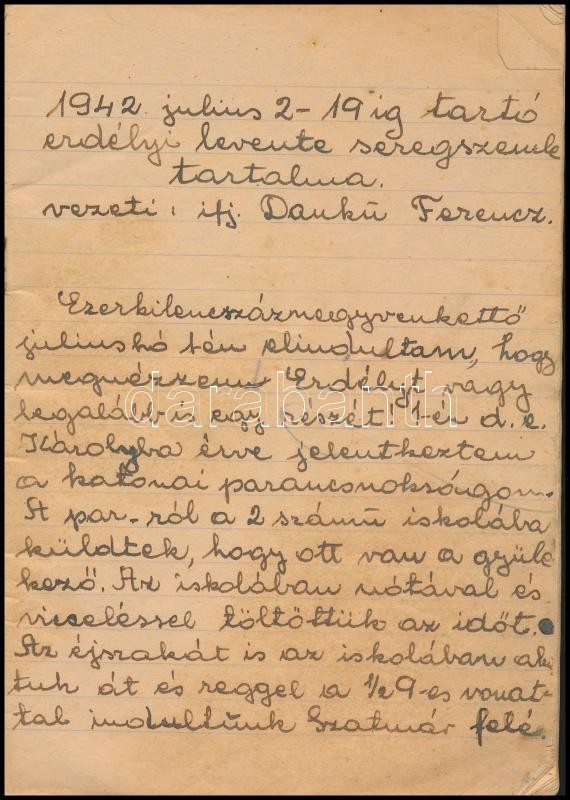 1942. julius 2-19ig tartó
erdélyi levente seregszemle
tartalma.
vezeti: ifj. Dankū Ferencz.
Ezerkilencszáznegyvenkettő
juliushó 1én elindultam, hogy
megnézzem Erdélyt vagy
legalább is egy részét! 1-én d.e.
Károlyba érve jelentkeztem
a katonai parancsnokságon.
A par-ról a 2 számū iskolába
küldtek, hogy ott van a gyüle
kező. Az iskolában nótával és
vicceléssel töltöttük az időt.
Az éjszakát is az iskolában alud
tuk át és reggel a ½9-es vonat-
tal indultūnk Szatmár felé.
darabanth